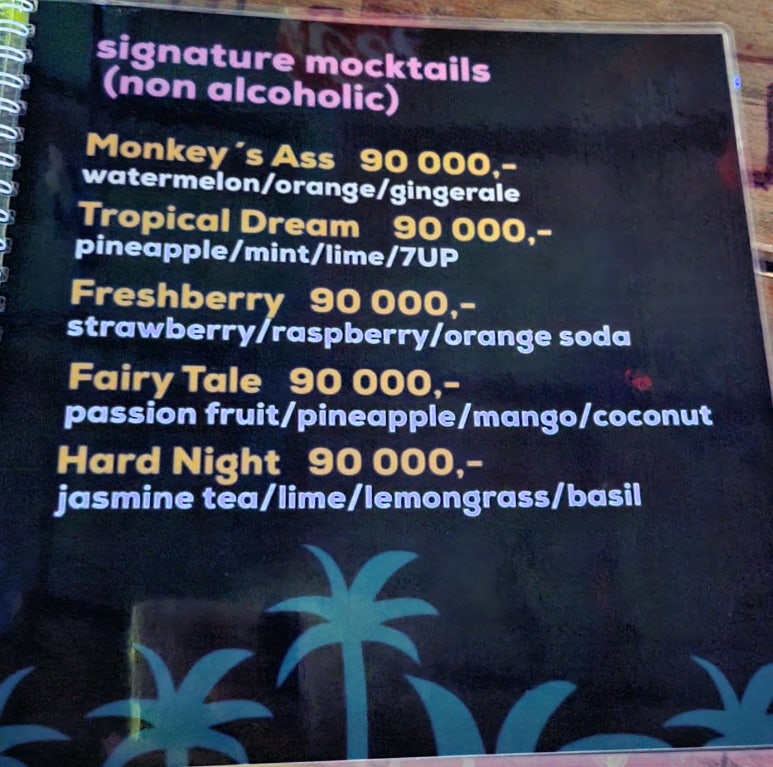 signature mocktails
(non alcoholic)
Monkey´s Ass 90 000,-
watermelon/orange/gingerale
Tropical Dream 90 000,-
pineapple/mint/lime/7UP
Freshberry 90 000,-
strawberry/raspberry/orange soda
Fairy Tale 90 000,-
passion fruit/pineapple/mango/coconut
Hard Night 90 000,-
jasmine tea/lime/lemongrass/basil